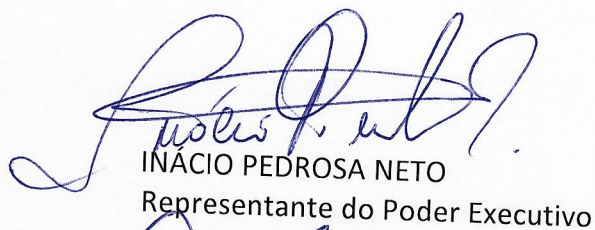 INÁCIO PEDROSA NETO
Representante do Poder Executivo